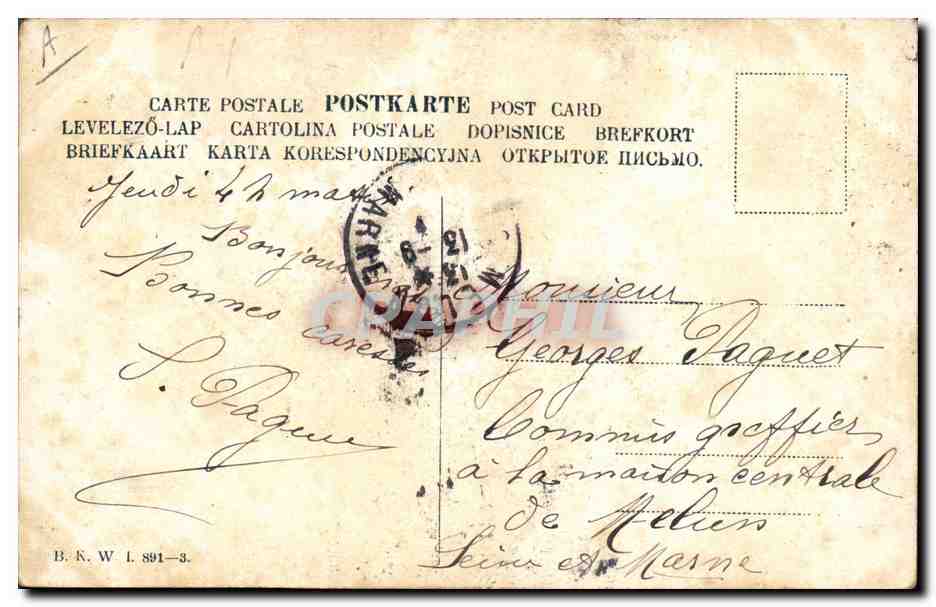 A
CARTE POSTALE POSTKARTE POST CARD
LEVELEZŐ-LAP CARTOLINA POSTALE DOPISNICE BREFKORT
BRIEFKAART KARTA KORESPONDENCYJNA ОТКРЫТОЕ ПИСЬМО.
Jeudi 4 h
Bonjour
Bonnes caresses
S. Paguet
MARNE
13
CPAPHIL
Monsieur
Georges Paguet
Commis greffier
à la maison centrale
de Melun
Seine et Marne
B. K. W I. 891—3.